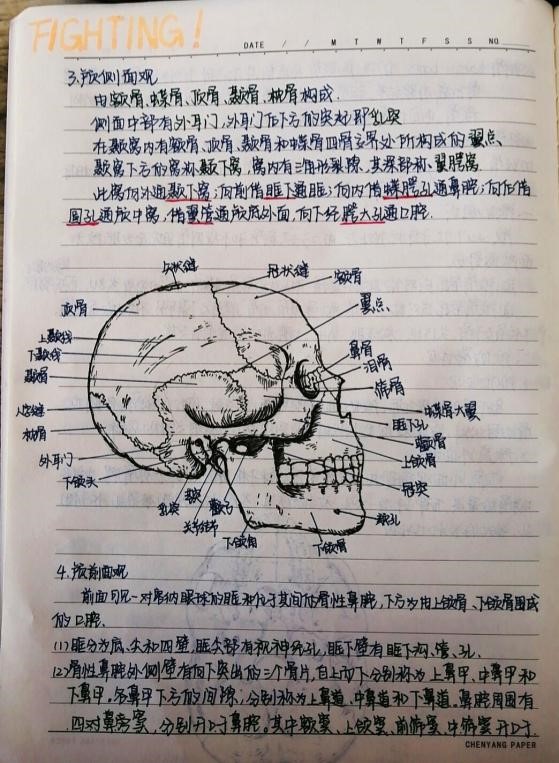 FIGHTING!
DATE / / M T W T F S S NO.
3.颅侧面观
由额骨、蝶骨、顶骨、颞骨、枕骨构成.
侧面中部有外耳门,外耳门后下方的突起即乳突
在颞窝内有额骨、顶骨、颞骨和蝶骨四骨交界处所构成的翼点、
颞窝下方的窝称颞下窝,窝内有三角形裂隙,其深部称、翼腭窝
此窝向外通颞下窝;向前借眶下通眶;向内借蝶腭孔通鼻腔;向后借
圆孔通颅中窝,借翼管通颅底外面,向下经腭大孔通口腔.
矢状缝
冠状缝
额骨
顶骨
翼点
上颞线
鼻骨
下颞线
泪骨
颞骨
筛骨
人字缝
蝶骨大翼
枕骨
眶下孔
颧骨
外耳门
上颌骨
下颌头
冠突
乳突
茎突
关节结节
颧弓
颏孔
下颌角
下颌骨
4.颅前面观
前面可见一对容纳眼球的眶和位于其间的骨性鼻腔,下方为由上颌骨、下颌骨围成
的口腔.
(1)眶分为底、尖和四壁,眶尖部有视神经孔,眶下壁有眶下沟、管、孔.
(2)骨性鼻腔外侧壁有向下突出的三个骨片,自上而下分别称为上鼻甲、中鼻甲和
下鼻甲。各鼻甲下方的间隙,分别称为上鼻道、中鼻道和下鼻道。鼻腔周围有
四对鼻旁窦,分别开口于鼻腔。其中额窦、上颌窦、前筛窦、中筛窦开口于.
CHENYANG PAPER